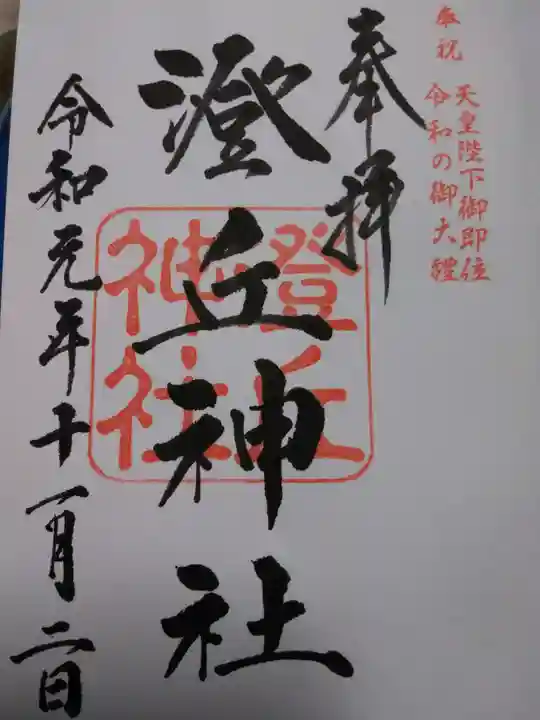 奉祝
天皇陛下御即位
令和の御大禮
奉拝
澄丘神社
澄丘
神社
令和元年十一月二日